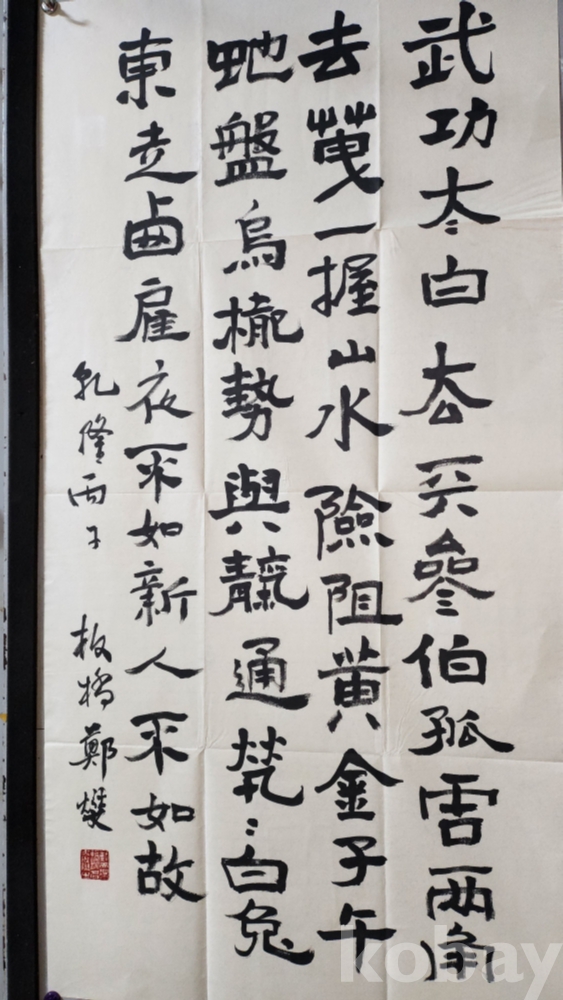 武功夳白厺兲參伯孤雲兩角
去一握山水險阻黃金子午
虵盤烏櫳勢與靝通煢〻白兔
東走卥雇衣不如新人不如故
乾隆丙子 板橋鄭燮
kobay